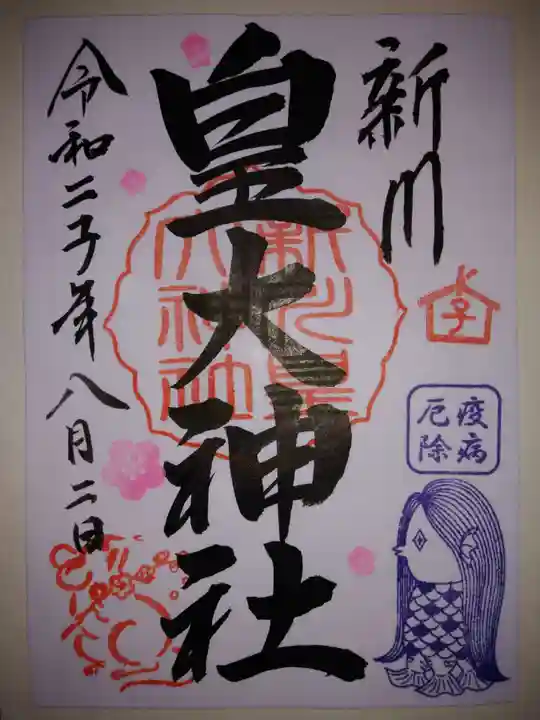 新川
皇大神社
令和二子年八月二日
新川皇
大神社
子
疫病
厄除